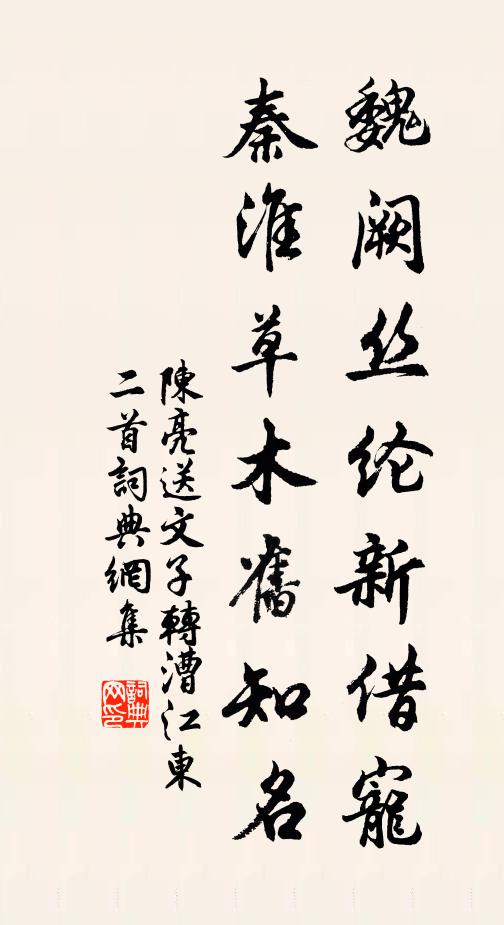 魏阙丝纶新借寵
秦淮草木舊知名
陳亮送文子轉漕江東
二首詞典網集
詞典网印